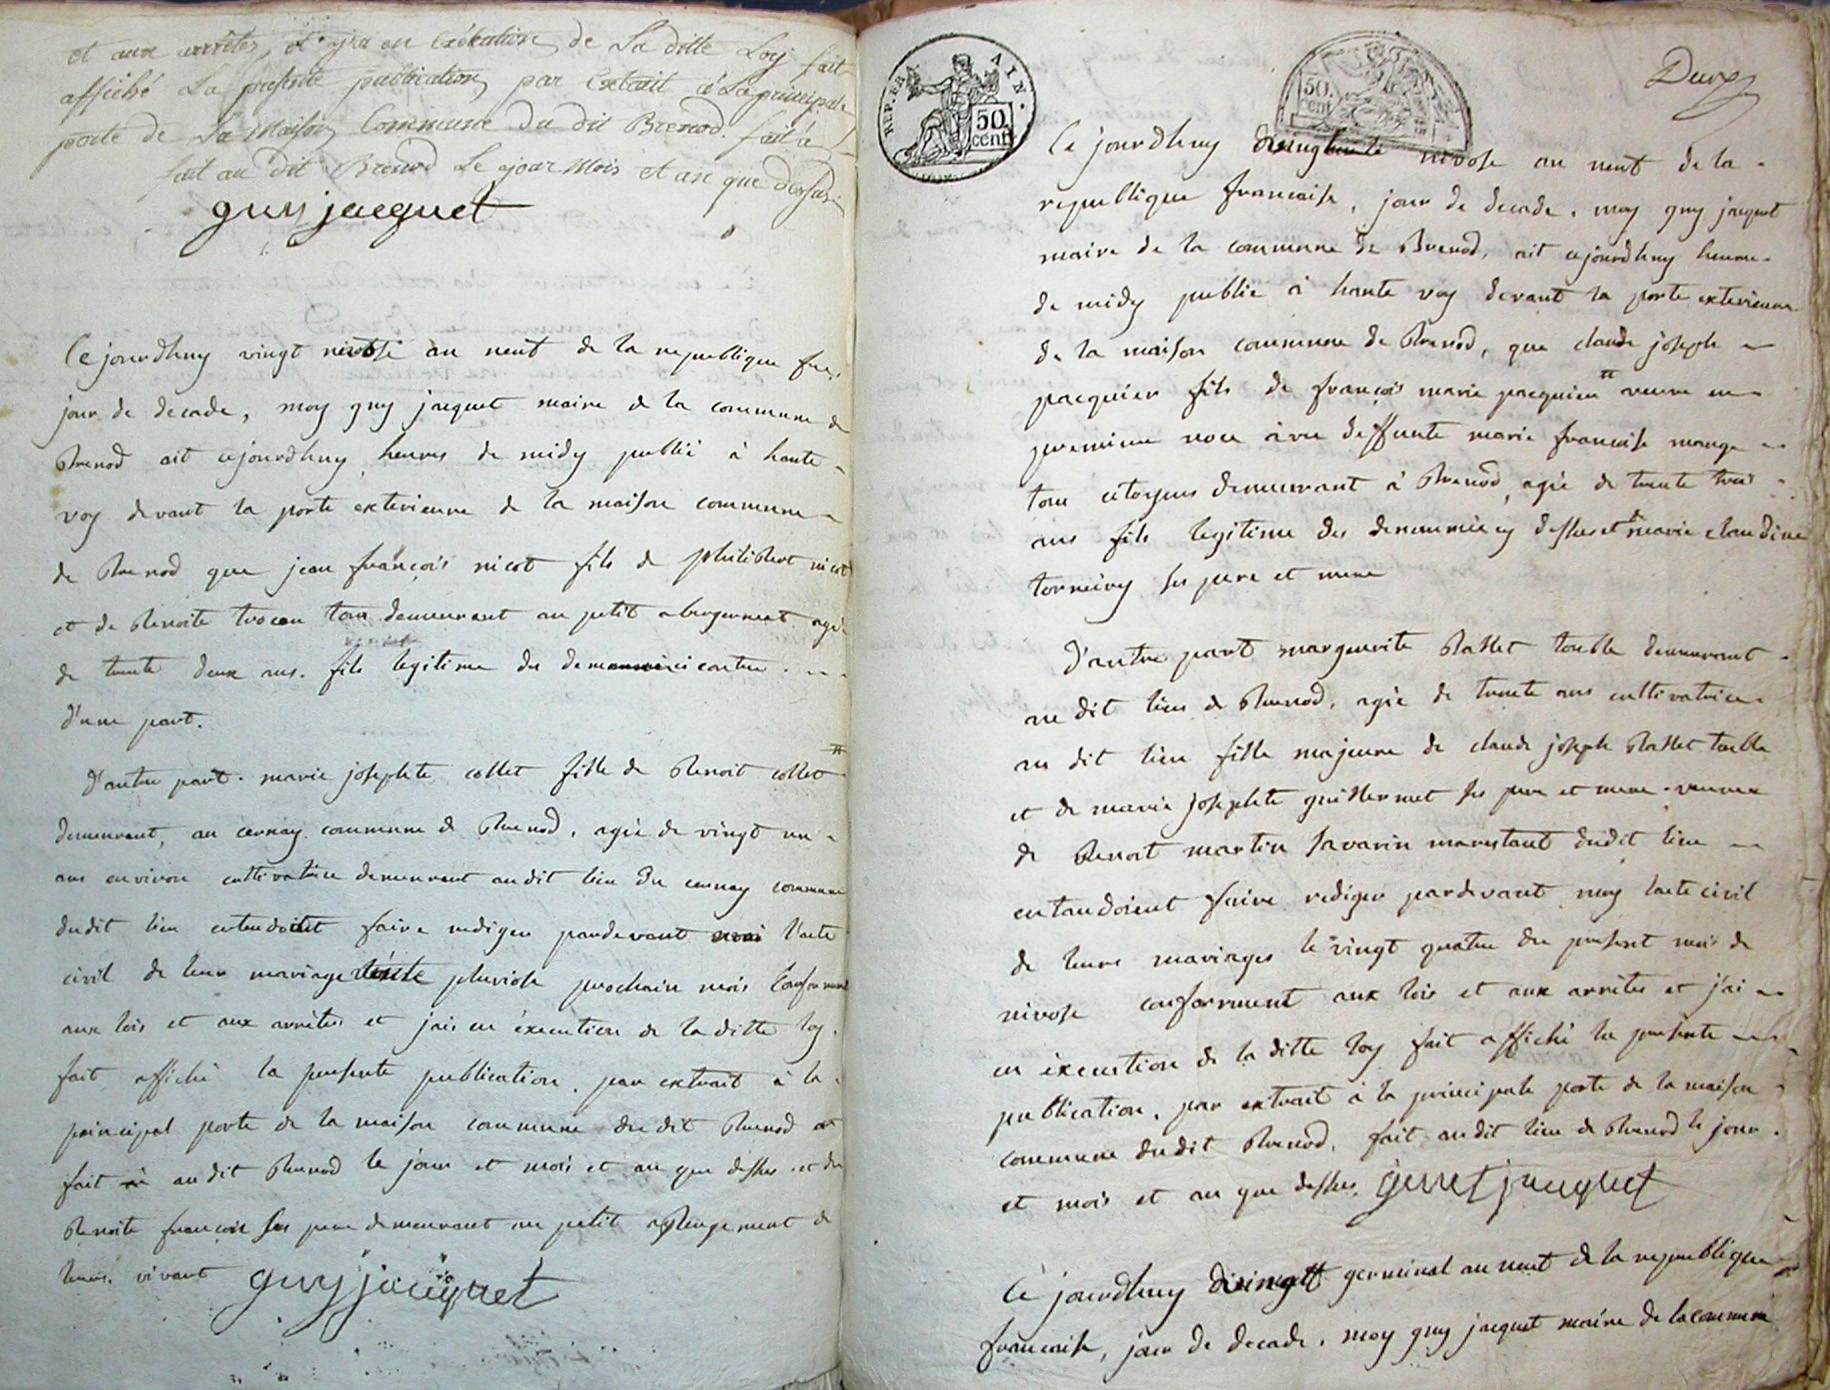 et aux arrêtés, et j'ai en Exécution de La ditte Loy fait
affiché La presente publication par Extrait à La principale
porte de La Maison Commune du dit Brenod. fait à
fait au dit Brenod Le jour Mois et an que dessus
guy jacquet
Ce jourdhuy vingt nivose an neuf de la republique fra
jour de decade, moy guy jacquet maire de la commune de
Brenod ait cejourdhuy heures de midy publié à haute
voy devant la porte exterieure de la maison commune
de Brenod que jean françois nicot fils de philibert nicot
et de Benoite trocon tous demeurant au petit abergement agé
de trente deux ans. fils legitime du denommé ci contre
d'une part.
D'autre part. marie josephte collet fille de Benoit collet
demeurant, au cernay commune de Brenod, agée de vingt un
ans environ cultivatrice demeurant audit lieu du cernay commune
dudit lieu entendoient faire rediger pardevant moi l'acte
civil de leur mariage pluviose prochain mois Conformement
aux lois et aux arrêtés et jais en éxecution de la ditte loy.
fait affiché la presente publication. par extrait à la
principal porte de la maison commune du dit Brenod et
fait audit Brenod le jour et mois et an que dessus. et de
Benoite françois ses pere demeurant au petit abergement de
leurs. vivant guy jacquet
REP. FRA. AIN.
50 cent
50. cent
Deux
Ce jourdhuy nivose an neuf de la
republique francaise, jour de decade. moy guy jacquet
maire de la commune de Brenod, ait cejourdhuy heure
de midy publié à haute voy devant la porte exterieure
de la maison commune de Brenod, que claude joseph
pacquier fils de françois marie pacquier veuve en
premiere noce avec deffunte marie francoise mange
tous citoyens demeurant à Brenod, agé de trente trois
ans fils legitime des denommées cy dessus et marie claudine
tornier ses pere et mere
D'autre part marguerite Ballet toublе demeurant
au dit lieu de Brenod, agée de trente ans cultivatrice
au dit lieu fille majeure de claude joseph Ballet
et de marie josephte guillermet ses pere et mere. veuve
de Benoit martin savarin dudit lieu
entandoient faire rediger pardevant moy lacte civil
de leurs mariages le vingt quatre du present mois de
nivose conforment aux lois et aux arrêtés et j'ai
en éxecution de la ditte loy fait affiché la presente
publication, par extrait à la principale porte de la maison
commune dudit Brenod, fait audit lieu de Brenod le jour
et mois et an que dessus. guy jacquet
Ce jourdhuy germinal an neuf de la republique
francaise, jour de decade. moy guy jacquet maire de la commune